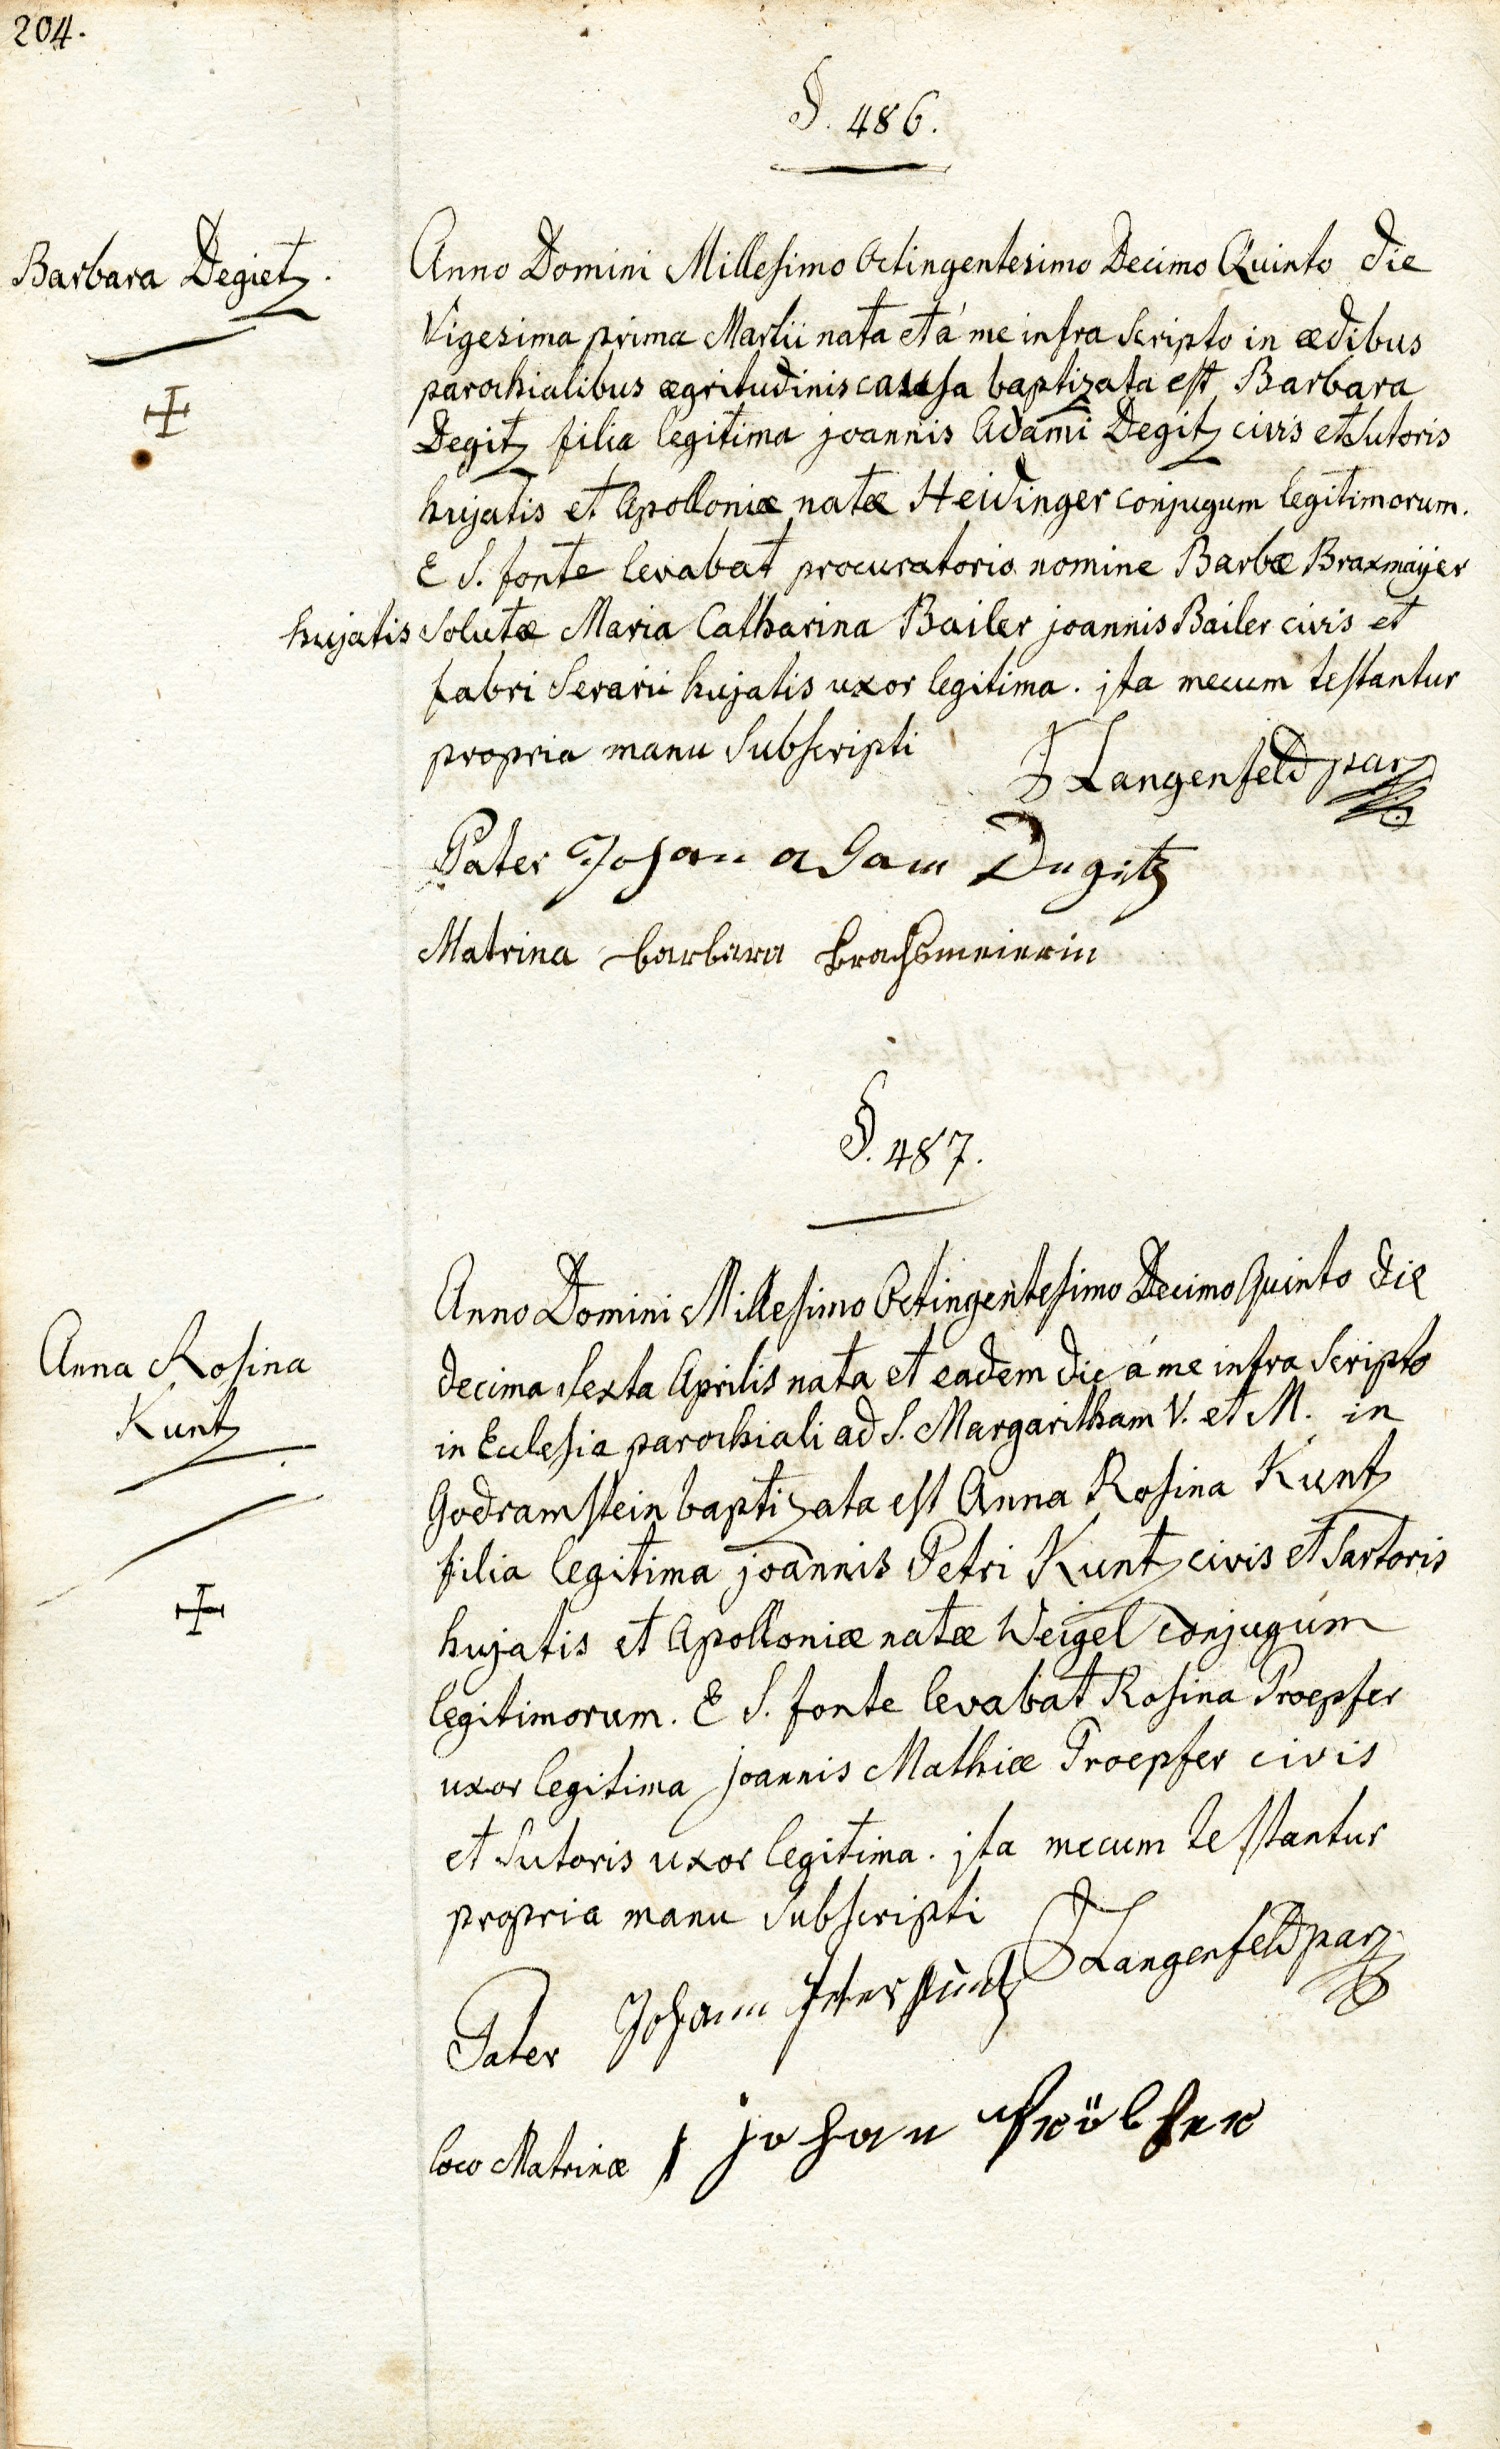 204.
§. 486.
Barbara Degietz.
Anno Domini Millesimo Octingentesimo Decimo Quinto die
Vigesima prima Martii nata et á me infra Scripto in ædibus
parochialibus ægritudinis caussa baptizata est Barbara
Degitz filia legitima joannis Adami Degitz civis et Sutoris
hujatis et Apolloniæ natæ Heidinger conjugum legitimorum.
E S. fonte levabat procuratorio nomine Barbæ Braxmaÿer
hujatis Solutæ Maria Catharina Bailer joannis Bailer civis et
fabri Serarii hujatis uxor legitima. jta mecum testantur
propria manu Subscripti
J Langenfeld par
Pater Johan adam Degitz
Matrina barbara brachsmeierin
§. 487.
Anna Rosina
Kuntz
Anno Domini Millesimo Octingentesimo Decimo Quinto die
decima Sexta Aprilis nata et eadem die á me infra Scripto
in Ecclesia parochiali ad S. Margaritham V. et M. in
Godramstein baptizata est Anna Rosina Kuntz
filia legitima joannis Petri Kuntz civis et Sartoris
hujatis et Apolloniæ natæ Weigel conjugum
legitimorum. E S. fonte levabat Rosina Troepfer
uxor legitima joannis Mathiæ Troepfer civis
et Sutoris uxor legitima. jta mecum testantur
propria manu Subscripti
J Langenfeld par
Pater Johann Peter Kuntz
loco Matrinæ johan